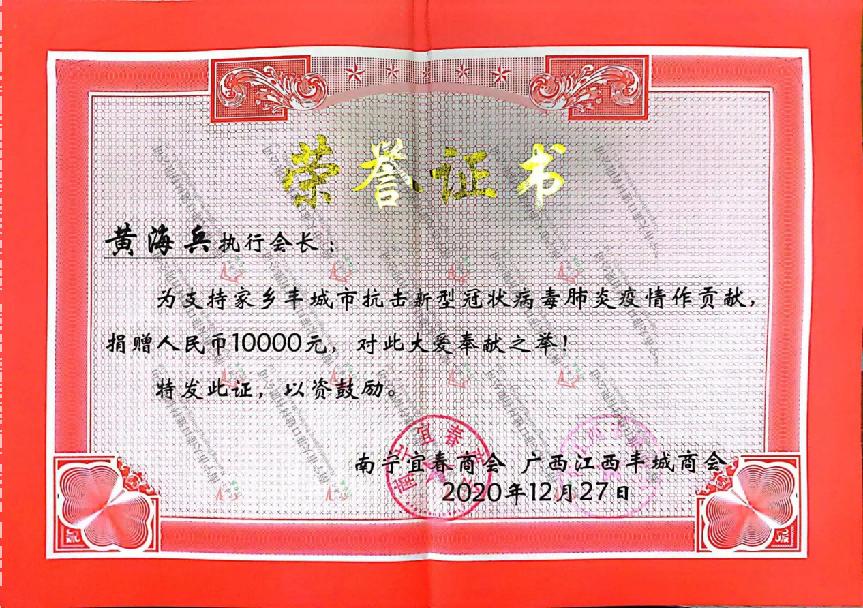 荣誉证书
黄海兵执行会长：
为支持家乡丰城市抗击新型冠状病毒肺炎疫情作贡献，
捐赠人民币10000元，对此大爱奉献之举！
特发此证，以资鼓励。
南宁宜春商会 广西江西丰城商会
2020年12月27日